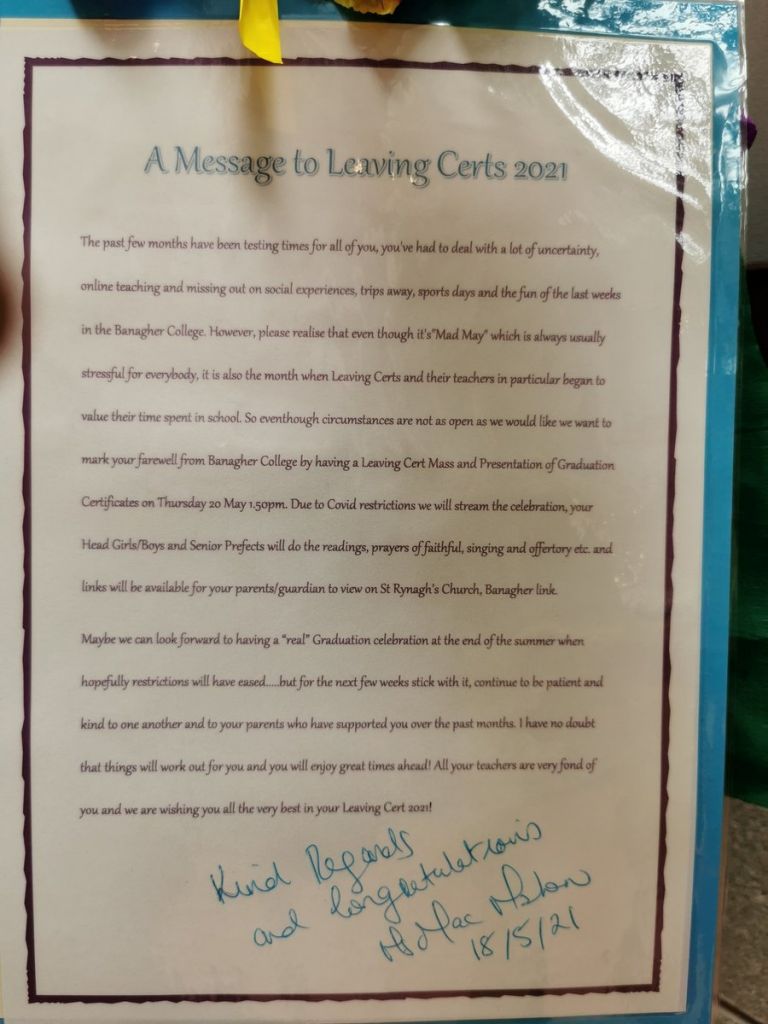 A Message to Leaving Certs 2021
The past few months have been testing times for all of you, you've had to deal with a lot of uncertainty,
online teaching and missing out on social experiences, trips away, sports days and the fun of the last weeks
in the Banagher College. However, please realise that even though it's"Mad May" which is always usually
stressful for everybody, it is also the month when Leaving Certs and their teachers in particular began to
value their time spent in school. So eventhough circumstances are not as open as we would like we want to
mark your farewell from Banagher College by having a Leaving Cert Mass and Presentation of Graduation
Certificates on Thursday 20 May 1.50pm. Due to Covid restrictions we will stream the celebration, your
Head Girls/Boys and Senior Prefects will do the readings, prayers of faithful, singing and offertory etc. and
links will be available for your parents/guardian to view on St Rynagh's Church, Banagher link.
Maybe we can look forward to having a "real" Graduation celebration at the end of the summer when
hopefully restrictions will have eased.....but for the next few weeks stick with it, continue to be patient and
kind to one another and to your parents who have supported you over the past months. I have no doubt
that things will work out for you and you will enjoy great times ahead! All your teachers are very fond of
you and we are wishing you all the very best in your Leaving Cert 2021!
Kind Regards
and Congratulations
Mac
18/5/21